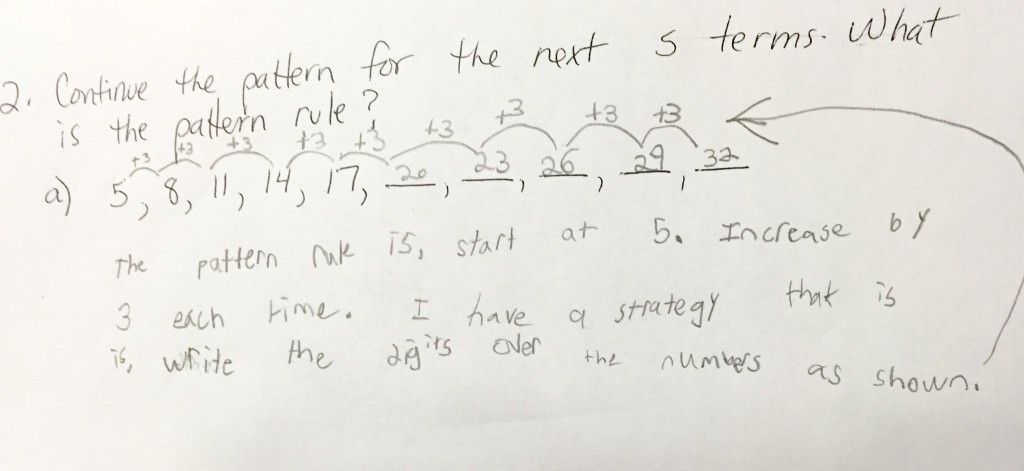 2. Continue the pattern for the next 5 terms. What
is the pattern rule?
+3 +3 +3 +3 +3 +3 +3 +3 +3
a) 5, 8, 11, 14, 17, 20, 23, 26, 29, 32
The pattern rule is, start at 5. Increase by
3 each time. I have a strategy that is
is, write the digits over the numbers as shown.